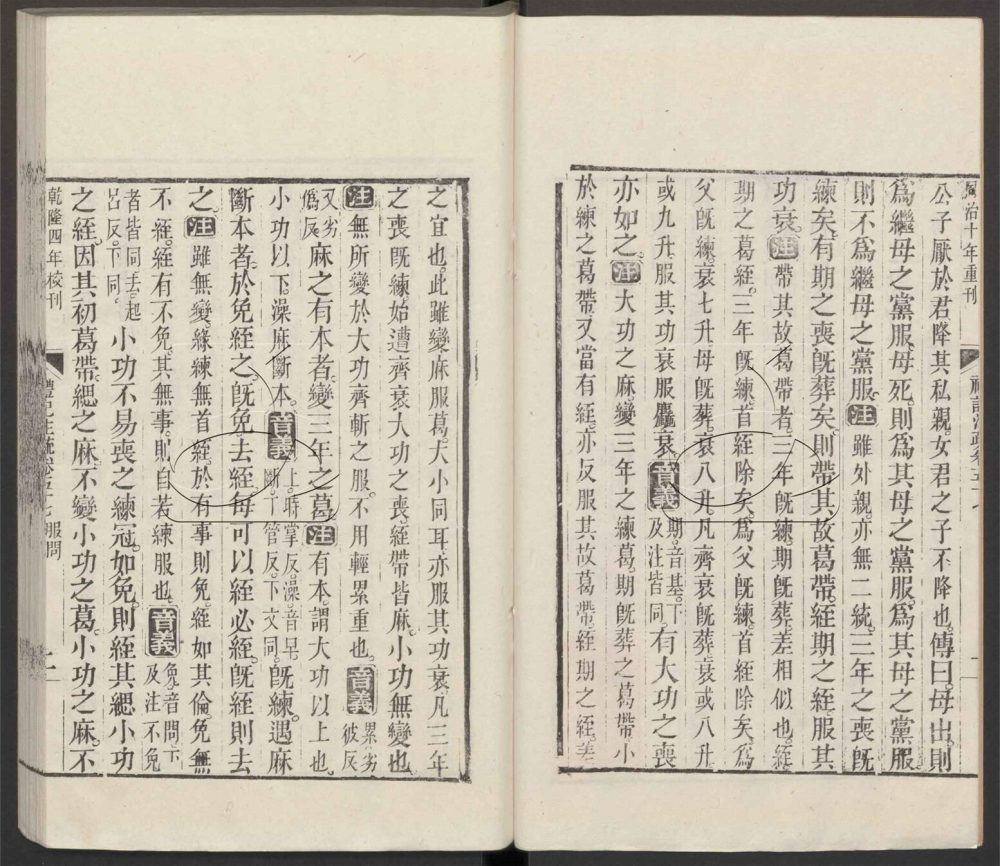 同治十年重刊
公子厭於君降其私親女君之子不降也傳曰母出則
爲繼母之黨服母死則爲其母之黨服爲其母之黨服
則不爲繼母之黨服注雖外親亦無二統三年之喪既
練矣有期之喪既葬矣則帶其故葛帶絰期之絰服其
功衰注帶其故葛帶者三年既練期既葬差相似也絰
期之葛絰三年既練首絰除矣爲父既練首絰除矣爲
父既練衰七升母既葬衰八升凡齊衰既葬衰或八升
或九升服其功衰服麤衰音義期音基下及注皆同有大功之喪
亦如之注大功之麻變三年之練葛期既葬之葛帶小
於練之葛帶又當有絰亦反服其故葛帶絰期之絰差
之宜也此雖變麻服葛大小同耳亦服其功衰凡三年
之喪既練始遭齊衰大功之喪絰帶皆麻小功無變也
注無所變於大功齊斬之服不用輕累重也音義累劣彼反
又劣僞反麻之有本者變三年之葛注有本謂大功以上也
小功以下澡麻斷本音義上時掌反澡音早斷丁管反下文同既練遇麻
斷本者於免絰之既免去絰每可以絰必絰既絰則去
之注雖無變緣練無首絰於有事則免絰如其倫免無
不絰絰有不免其無事則自若練服也音義免音問下及注不免
者皆同去起呂反下同小功不易喪之練冠如免則絰其緦小功
之絰因其初葛帶緦之麻不變小功之葛小功之麻不
乾隆四年校刊
服問